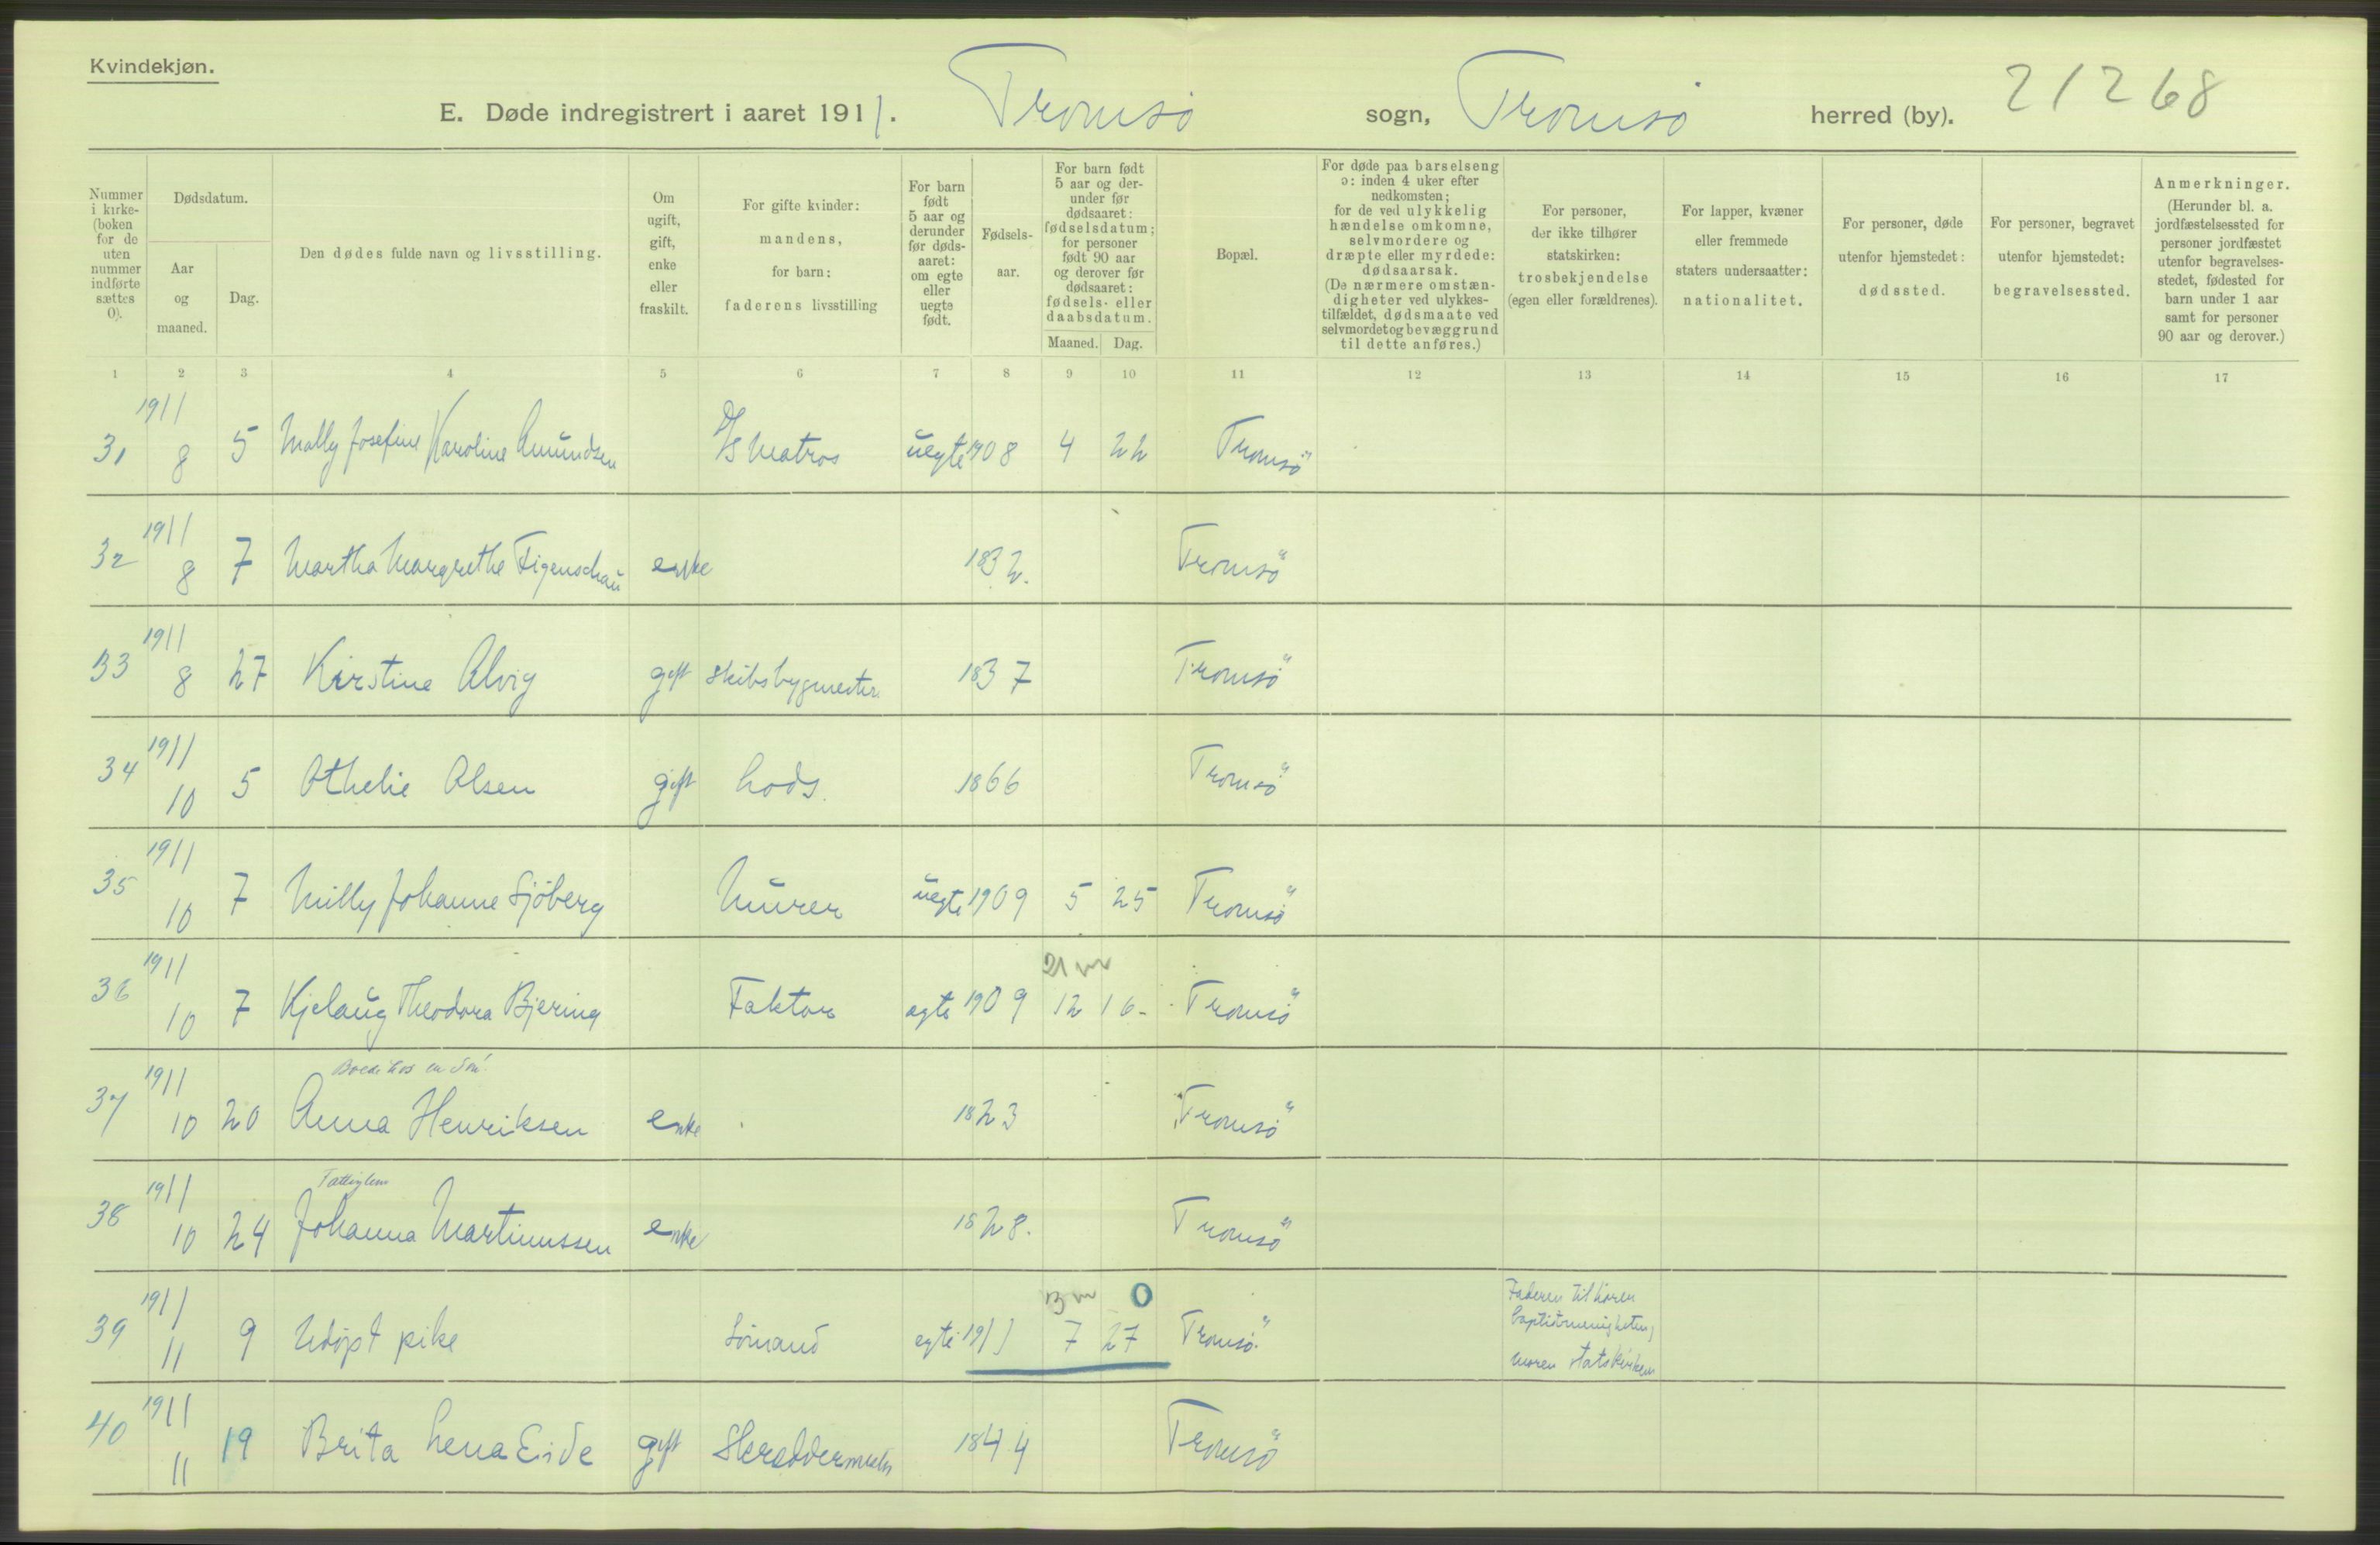 Kvindekjøn.
E. Døde indregistrert i aaret 1911. Tromsö sogn, Tromsö herred (by). 21268
Nummer i kirke-(boken for de uten nummer indførte sættes 0).
Dødsdatum.
Aar og maaned.
Dag.
Den dødes fulde navn og livsstilling.
Om ugift, gift, enke eller fraskilt.
For gifte kvinder: mandens, for barn: faderens livsstilling
For barn født 5 aar og derunder før døds-aaret: om egte eller uegte født.
Fødsels-aar.
For barn født 5 aar og der-under før dødsaaret: fødselsdatum; for personer født 90 aar og derover før dødsaaret: fødsels- eller daabsdatum.
Maaned. Dag.
Bopæl.
For døde paa barselseng ɔ: inden 4 uker efter nedkomsten; for de ved ulykkelig hændelse omkomne, selvmordere og dræpte eller myrdede: dødsaarsak. (De nærmere omstæn-digheter ved ulykkes-tilfældet, dødsmaate ved selvmordet og bevæggrund til dette anføres.)
For personer, der ikke tilhører statskirken: trosbekjendelse (egen eller forældrenes).
For lapper, kvæner eller fremmede staters undersaatter: nationalitet.
For personer, døde utenfor hjemstedet: dødssted.
For personer, begravet utenfor hjemstedet: begravelsessted.
Anmerkninger. (Herunder bl. a. jordfæstelsessted for personer jordfæstet utenfor begravelses-stedet, fødested for barn under 1 aar samt for personer 90 aar og derover.)
1 2 3 4 5 6 7 8 9 10 11 12 13 14 15 16 17
31 1911 8 5 Mally Josefine Karoline Amundsen Matros uegte 1908 4 22 Tromsö
32 1911 8 7 Martha Margrethe Figenschau enke 1832. Tromsö
33 1911 8 27 Kirstine Alvig gift skibsbygmester 1837 Tromsö
34 1911 10 5 Othelie Olsen gift Lods. 1866 Tromsö
35 1911 10 7 Milly Johanne Sjöberg Murer uegte 1909 5 25 Tromsö
21 m
36 1911 10 7 Kjelaug Theodora Bjering Faktor egte 1909 12 16 Tromsö
Boede hos en Sön
37 1911 10 20 Anna Henriksen enke 1823 Tromsö
Fattiglem
38 1911 10 24 Johanna Martinussen enke 1828. Tromsö
3 m 0
39 1911 11 9 Udöpt pike Sömand egte 1911 7 27 Tromsö
Faderen tilhören
baptistmenigheten,
moren statskirken
40 1911 11 19 Brita Lena Eide gift Skreddermester 1844 Tromsö